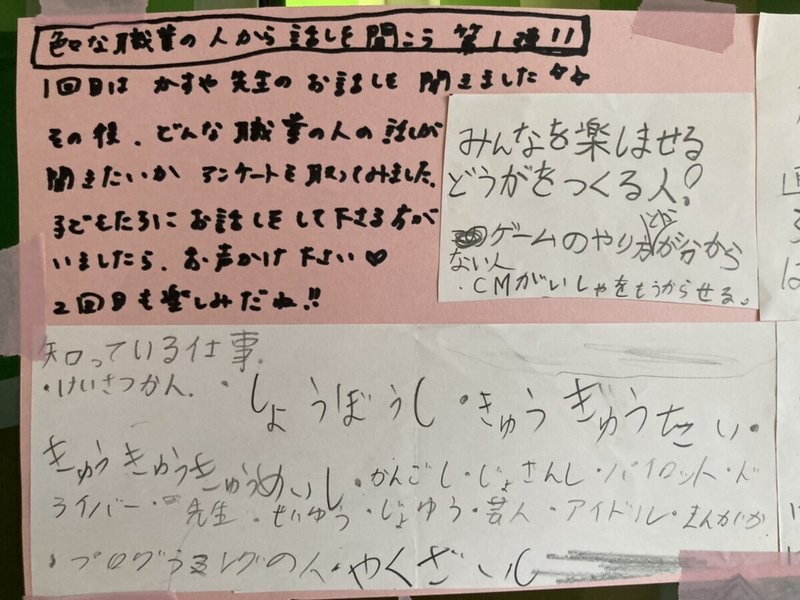 色々な職業の人から話しを聞こう 第1弾!!
1回目は かすや先生の お話しを 聞きました☆☆
その後、どんな職業の人の話しが
聞きたいか アンケートを取ってみました。
子どもたちに お話しをして下さる方が
いましたら、お声かけ下さい♡
2回目も楽しみだね!!
みんなを楽しませる
どうがをつくる人!
ゲームのやり方とかが分から
ない人
・CMがいしゃをもうからせる。
知っている仕事
・けいさつかん・しょうぼうし・きゅうきゅうたい・
きゅうきゅうきゅうめいし・かんごし・じょさんし・パイロット・ド
ライバー・先生・せいゆう・じょゆう・芸人・アイドル・まんがか
・プログラミングの人・やくざいし